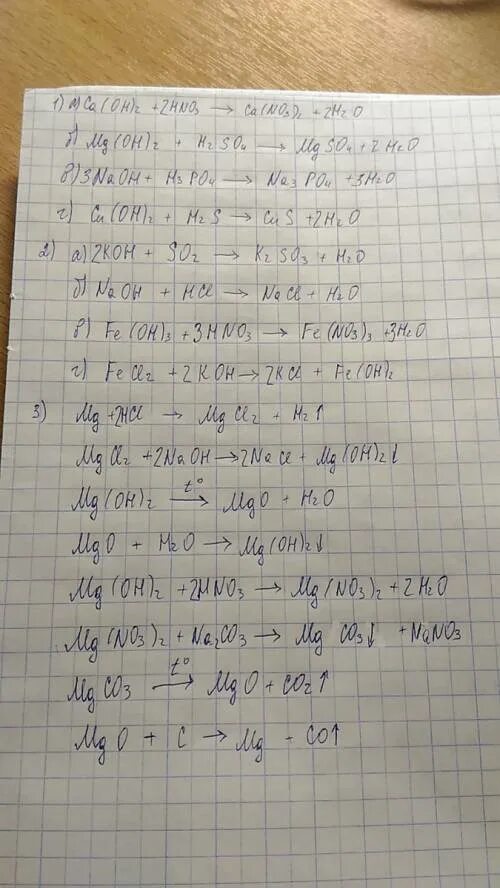 1) а) Ca(OH)₂ + 2HNO₃ → Ca(NO₃)₂ + 2H₂O
б) Mg(OH)₂ + H₂SO₄ → MgSO₄ + 2H₂O
в) 3NaOH + H₃PO₄ → Na₃PO₄ + 3H₂O
г) Cu(OH)₂ + H₂S → CuS + 2H₂O
2) а) 2KOH + SO₂ → K₂SO₃ + H₂O
б) NaOH + HCl → NaCl + H₂O
в) Fe(OH)₃ + 3HNO₃ → Fe(NO₃)₃ + 3H₂O
г) FeCl₂ + 2KOH → 2KCl + Fe(OH)₂
3) Mg + 2HCl → MgCl₂ + H₂↑
MgCl₂ + 2NaOH → 2NaCl + Mg(OH)₂↓
Mg(OH)₂ t° → MgO + H₂O
MgO + H₂O → Mg(OH)₂↓
Mg(OH)₂ + 2HNO₃ → Mg(NO₃)₂ + 2H₂O
Mg(NO₃)₂ + Na₂CO₃ → MgCO₃↓ + NaNO₃
MgCO₃ t° → MgO + CO₂↑
MgO + C → Mg + CO↑